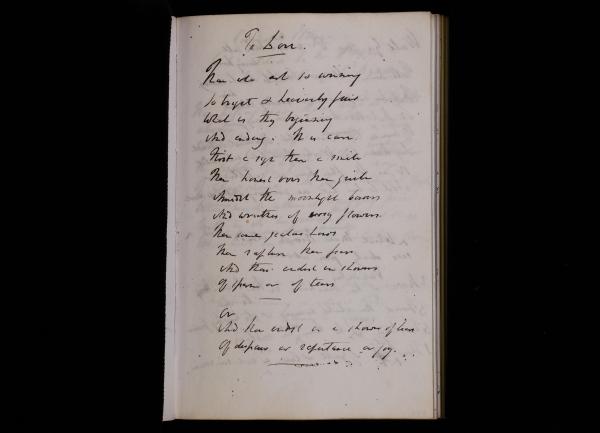 To Love.
Thou who art so winning
So bright & heavenly fair
What is thy beginning
And ending. It is care
First a sigh then a smile
Then honest vows then guile
Amidst the moonlight bowers
And wreathes of every flowers
Then some jealous hours
Then rapture then
And thou endest in showers
Of or of tears
or
And thou endest in a shower of tears
Of despair or repentance or joy. . .